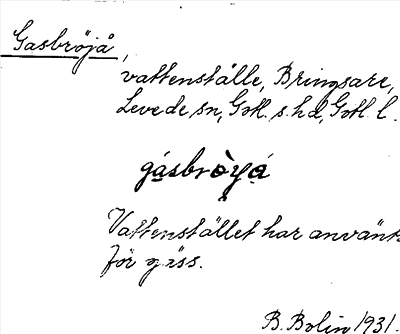 Gasbröjå,
vattenställe, Bringsare,
Levede sn, Gotl. s. hd, Gotl. l.
gásbròyá
Vattenstället har använts
för gäss.
B. Bolin 1931.